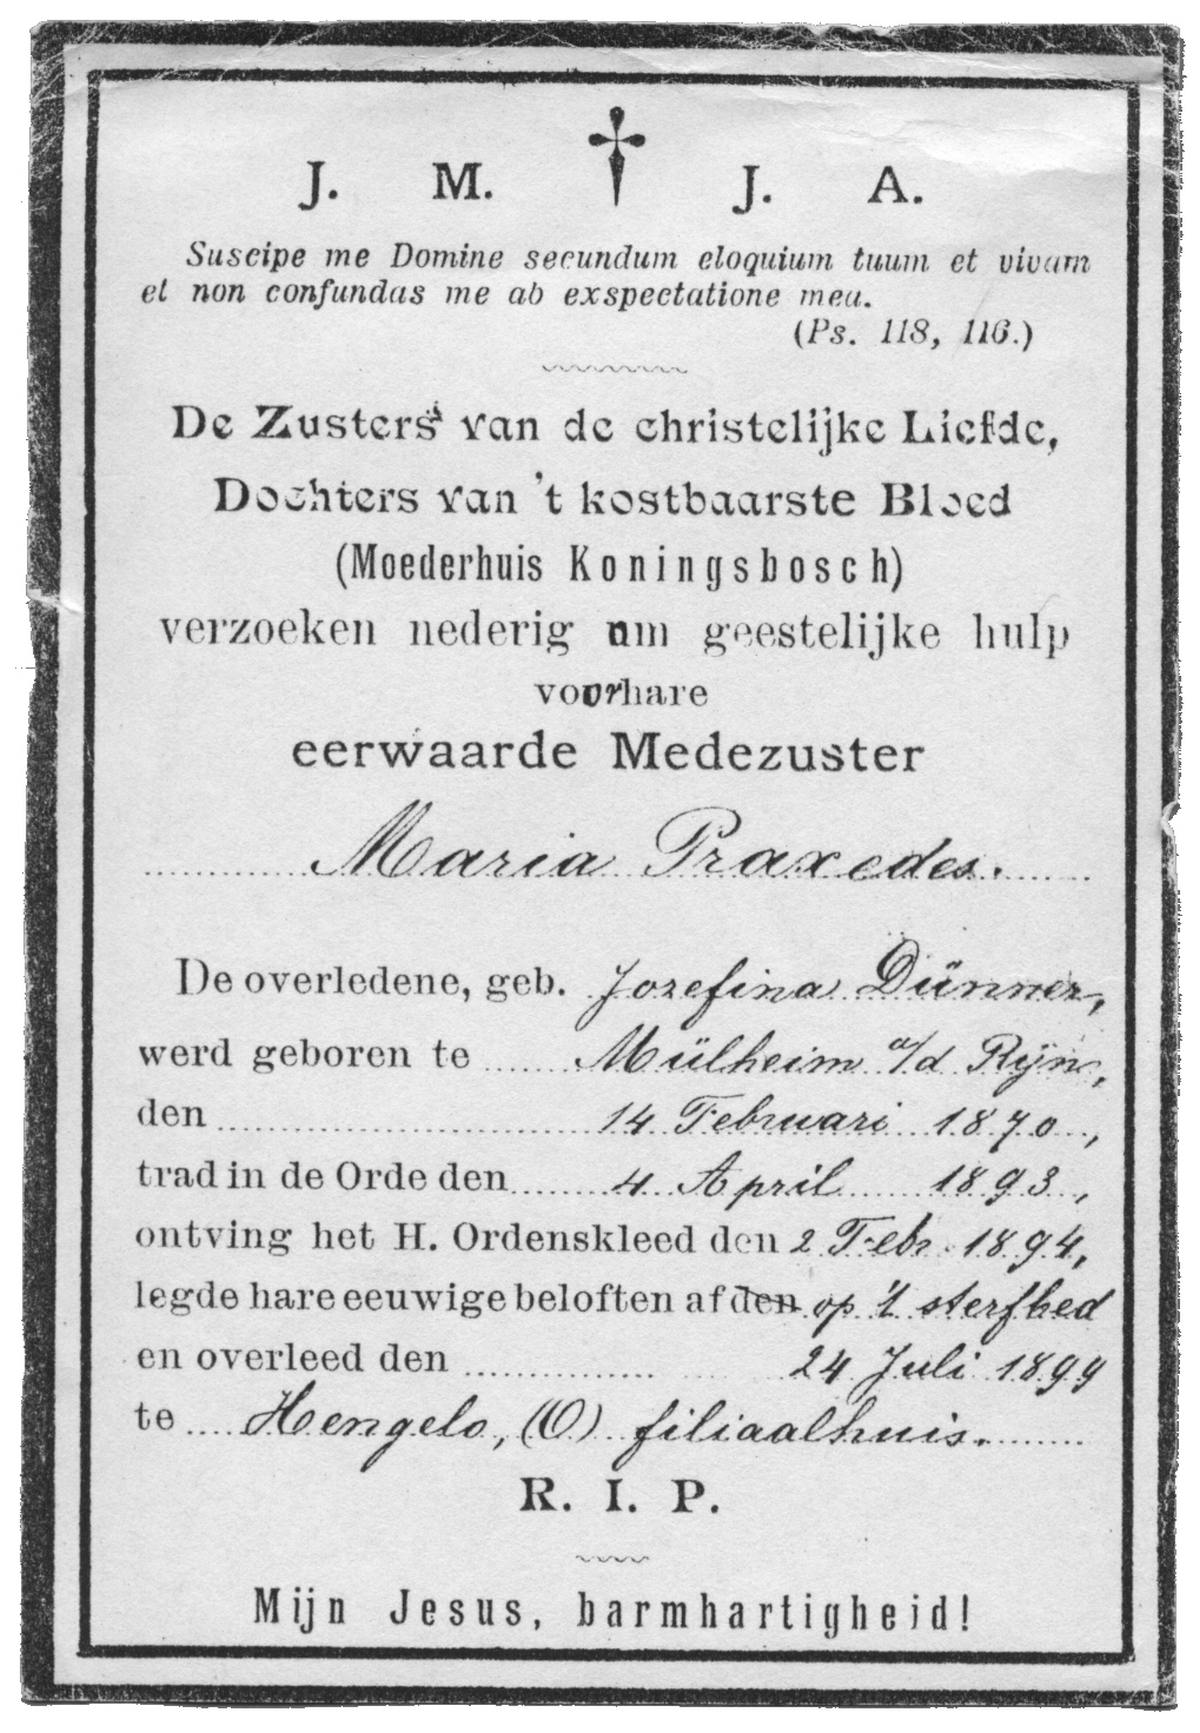 J. M. J. A.
Suscipe me Domine secundum eloquium tuum et vivam
et non confundas me ab exspectatione mea.
(Ps. 118, 116.)
De Zusters van de christelijke Liefde,
Dochters van 't kostbaarste Bloed
(Moederhuis Koningsbosch)
verzoeken nederig om geestelijke hulp
voor hare
eerwaarde Medezuster
Maria Praxedes.
De overledene, geb. Jozefina Dünner,
werd geboren te Mülheim a/d Rijn,
den 14 Februari 1870,
trad in de Orde den 4 April 1893,
ontving het H. Ordenskleed den 2 Febr. 1894,
legde hare eeuwige beloften af den op 't sterfbed
en overleed den 24 Juli 1899
te Hengelo, (O) filiaalhuis.
R. I. P.
Mijn Jesus, barmhartigheid!